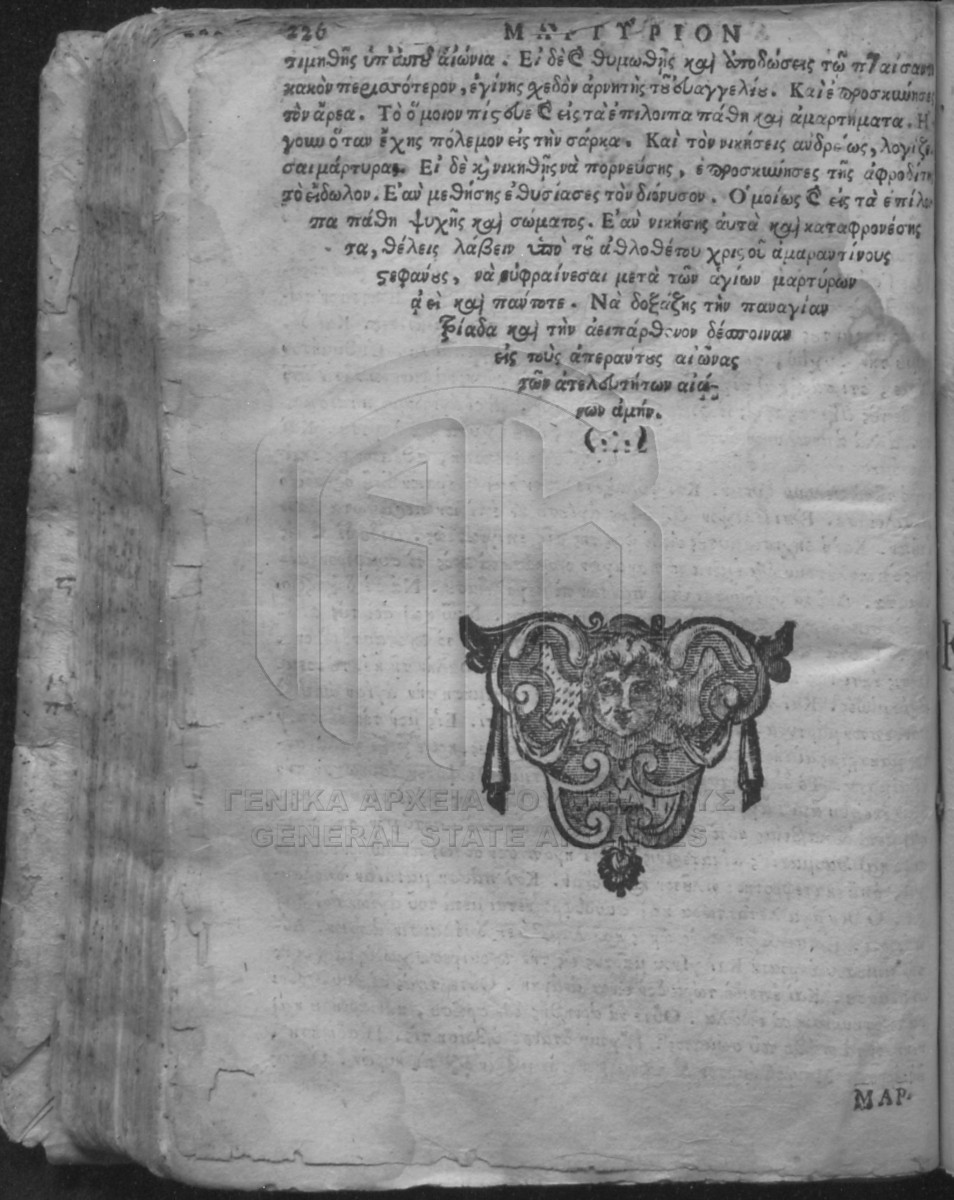 226 ΜΑΡΤΥΡΙΟΝ
τιμηθῇς ὑπ' αὐτοῦ αἰώνια. Εἰ δὲ καὶ θυμωθῇς καὶ ἀποδώσεις τῷ πταίσαντι
κακὸν περισσότερον, ἐγίνης σχεδὸν ἀρνητὴς τοῦ εὐαγγελίου. Καὶ ἐπροσκύνησες
τὸν ἄρεα. Τὸ ὅμοιον πίστευε καὶ εἰς τὰ ἐπίλοιπα πάθη καὶ ἁμαρτήματα. Η
γουν ὅταν ἔχῃς πόλεμον εἰς τὴν σάρκα. Καὶ τὸν νικήσεις ἀνδρείως, λογίζε
σαι μάρτυρας. Εἰ δὲ καὶ νικηθῇς νὰ πορνεύσῃς, ἐπροσκύνησες τῆς ἀφροδίτης
τὸ εἴδωλον. Ἐὰν μεθήσῃς ἐθυσίασες τὸν διόνυσον. Ὁμοίως καὶ εἰς τὰ ἐπίλοι
πα πάθη ψυχῆς καὶ σώματος. Ἐὰν νικήσῃς αὐτὰ καὶ καταφρονέσῃς
τα, θέλεις λάβειν ὑπὸ τοῦ ἀθλοθέτου χριστοῦ ἀμαραντίνους
στεφάνους, νὰ εὐφραίνεσαι μετὰ τῶν ἁγίων μαρτύρων
ἀεὶ καὶ πάντοτε. Νὰ δοξάζῃς τὴν παναγίαν
τριάδα καὶ τὴν ἀειπάρθενον δέσποιναν
εἰς τοὺς ἀπεράντους αἰῶνας
τῶν ἀτελευτήτων αἰώ-
νων ἀμήν.
(∴)
ΓΕΝΙΚΑ ΑΡΧΕΙΑ ΤΟΥ ΚΡΑΤΟΥΣ
GENERAL STATE ARCHIVES
ΜΑΡ-